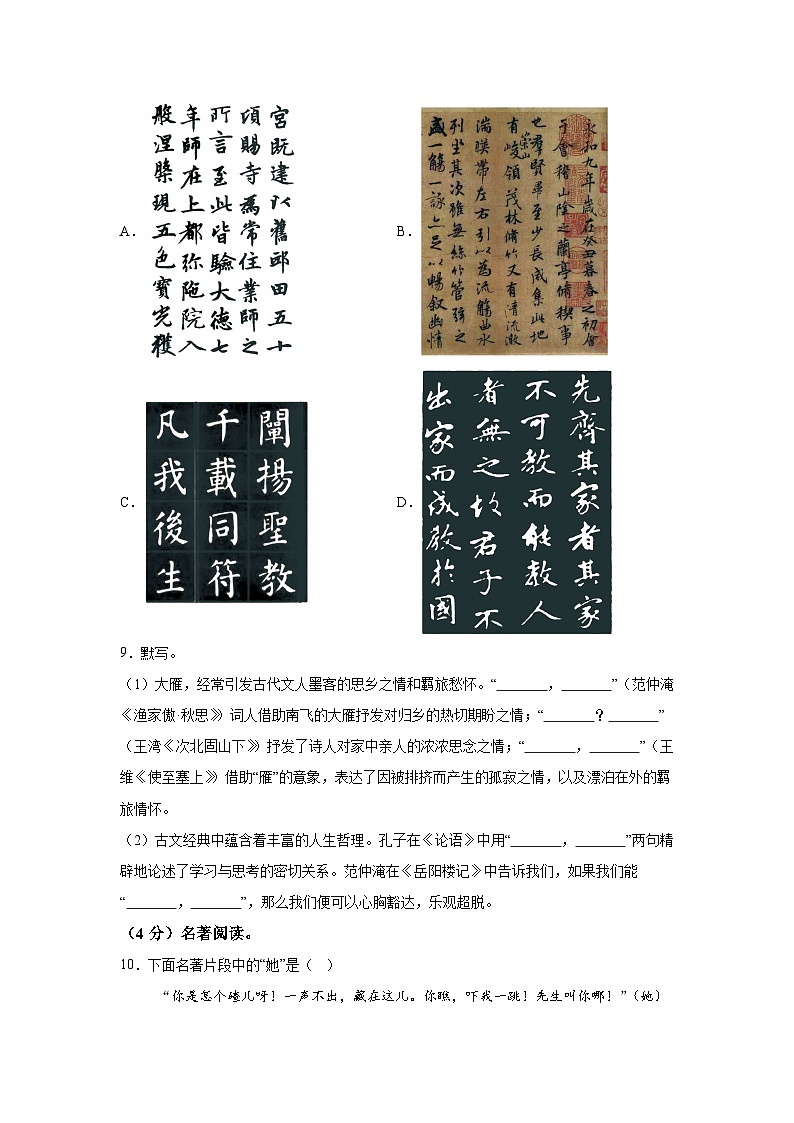 A．
宮既建以舊邸田五十
頃賜寺為常住業師之
所言至此皆驗大德七
年師在上都弥陁院入
般涅槃現五色寶光獲
B．
永和九年歲在癸丑暮春之初會
于會稽山陰之蘭亭脩稧事
也群賢畢至少長咸集此地
有崇山峻領茂林脩竹又有清流激
湍暎帶左右引以為流觴曲水
列坐其次雖無絲竹管弦之
盛一觴一詠亦足以暢叙幽情
C．
闡揚聖教
千載同符
凡我後生
D．
先齊其家者其家
不可教而能教人
者無之故君子不
出家而成教於國
9．默写。
（1）大雁，经常引发古代文人墨客的思乡之情和羁旅愁怀。“_______，_______”（范仲淹
《渔家傲·秋思》）词人借助南飞的大雁抒发对归乡的热切期盼之情；“_______？_______”
（王湾《次北固山下》）抒发了诗人对家中亲人的浓浓思念之情；“_______，_______”（王
维《使至塞上》）借助“雁”的意象，表达了因被排挤而产生的孤寂之情，以及漂泊在外的羁
旅情怀。
（2）古文经典中蕴含着丰富的人生哲理。孔子在《论语》中用“_______，_______”两句精
辟地论述了学习与思考的密切关系。范仲淹在《岳阳楼记》中告诉我们，如果我们能
“_______，_______”，那么我们便可以心胸豁达，乐观超脱。
（4 分）名著阅读。
10．下面名著片段中的“她”是（ ）
“你是怎个碴儿呀！一声不出，藏在这儿。你瞧，吓我一跳！先生叫你哪！”（她）